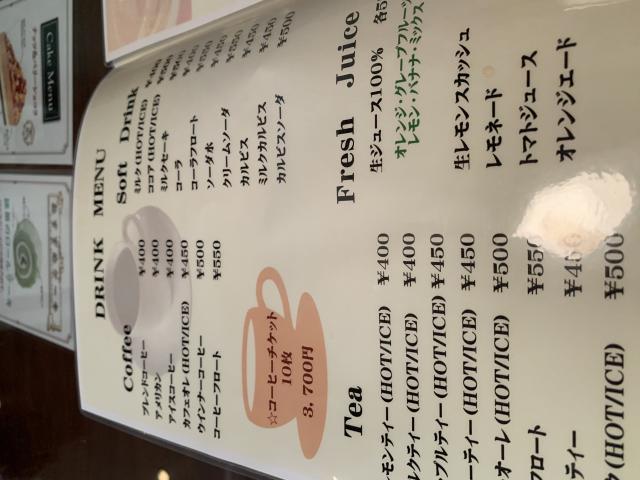 DRINK MENU
Coffee
ブレンドコーヒー ¥400
アメリカン ¥400
アイスコーヒー ¥400
カフェオレ (HOT/ICE) ¥450
ウインナーコーヒー ¥500
コーヒーフロート ¥550
☆コーヒーチケット
10枚
3,700円
Soft Drink
ミルク (HOT/ICE) ¥400
ココア (HOT/ICE) ¥500
ミルクセーキ
コーラ
コーラフロート ¥550
ソーダ水
クリームソーダ ¥550
カルピス ¥450
ミルクカルピス ¥450
カルピスソーダ ¥500
Tea
モンティー (HOT/ICE) ¥400
ルクティー (HOT/ICE) ¥400
プルティー (HOT/ICE) ¥450
ーティー (HOT/ICE) ¥450
オーレ (HOT/ICE) ¥500
フロート ¥550
ティー
(HOT/ICE) ¥500
Fresh Juice
生ジュース100% 各5
オレンジ・グレープフルーツ
レモン・バナナ・ミックス
生レモンスカッシュ
レモネード
トマトジュース
オレンジエード
Cake Menu